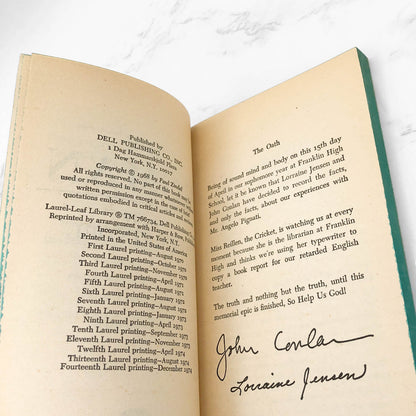 Published by
DELL PUBLISHING CO., INC.
1 Dag Hammarskjold Plaza
New York, N.Y. 10017
Copyright © 1968 by Paul Zindel
All rights reserved. No part of this book
used or reproduced in any manner whatsoever
written permission except in the case of
quotations embodied in critical articles and
Laurel-Leaf Library ® TM 766734, Dell Publishing
Reprinted by arrangement with Harper & Row,
Incorporated, New York, N.Y.
Printed in the United States of America
First Laurel printing—August 1970
Second Laurel printing—October 1970
Third Laurel printing—November 1970
Fourth Laurel printing—April 1971
Fifth Laurel printing—August 1971
Sixth Laurel printing—January 1972
Seventh Laurel printing—August 1972
Eighth Laurel printing—January 1973
Ninth Laurel printing—April 1973
Tenth Laurel printing—September 1973
Eleventh Laurel printing—November 1973
Twelfth Laurel printing—April 1974
Thirteenth Laurel printing—August 1974
Fourteenth Laurel printing—December 1974
The Oath
Being of sound mind and body on this 15th day
of April in our sophomore year at Franklin High
School, let it be known that Lorraine Jensen and
John Conlan have decided to record the facts,
and only the facts, about our experiences with
Mr. Angelo Pignati.
Miss Reillen, the Cricket, is watching us at every
moment because she is the librarian at Franklin
High and thinks we're using her typewriter to
copy a book report for our retarded English
teacher.
The truth and nothing but the truth, until this
memorial epic is finished, So Help Us God!
John Conlan
Lorraine Jensen